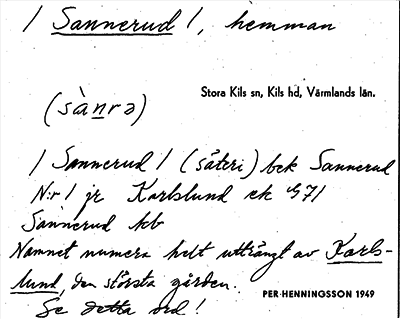 / Sannerud /, hemman
Stora Kils sn, Kils hd, Värmlands län.
(sànrə)
/ Sannerud / (säteri) bek Sannerud
N:r 1 jr Karlslund ek 971
Sannerud kb
Namnet numera helt utträngt av Karls-
lund, den största gården.
PER HENNINGSSON 1949
Se detta ord!